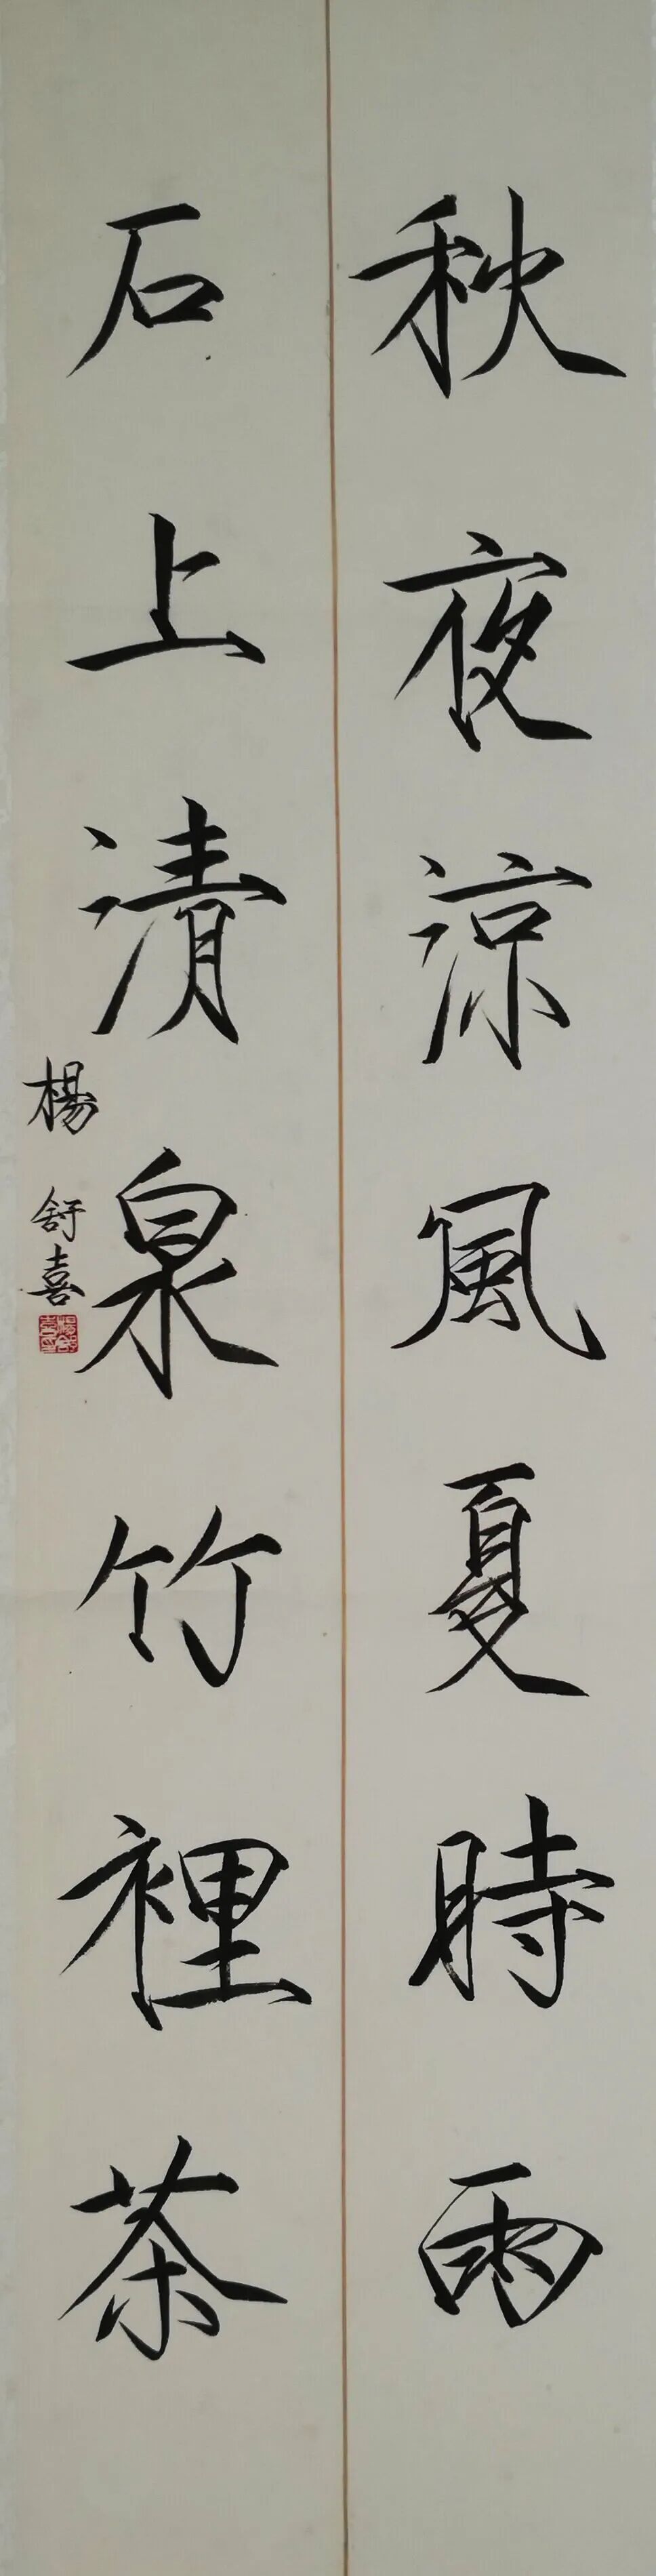 秋夜涼風夏時雨
石上清泉竹裡茶
楊舒喜